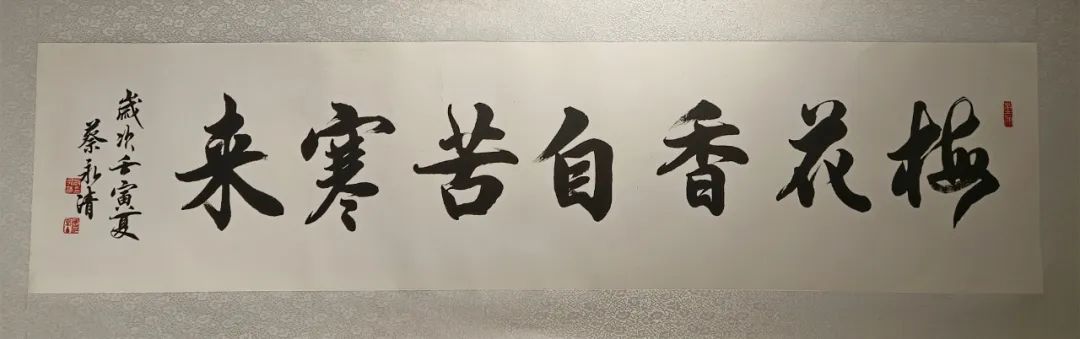 梅花香自苦寒来
歲次壬寅夏
蔡永清